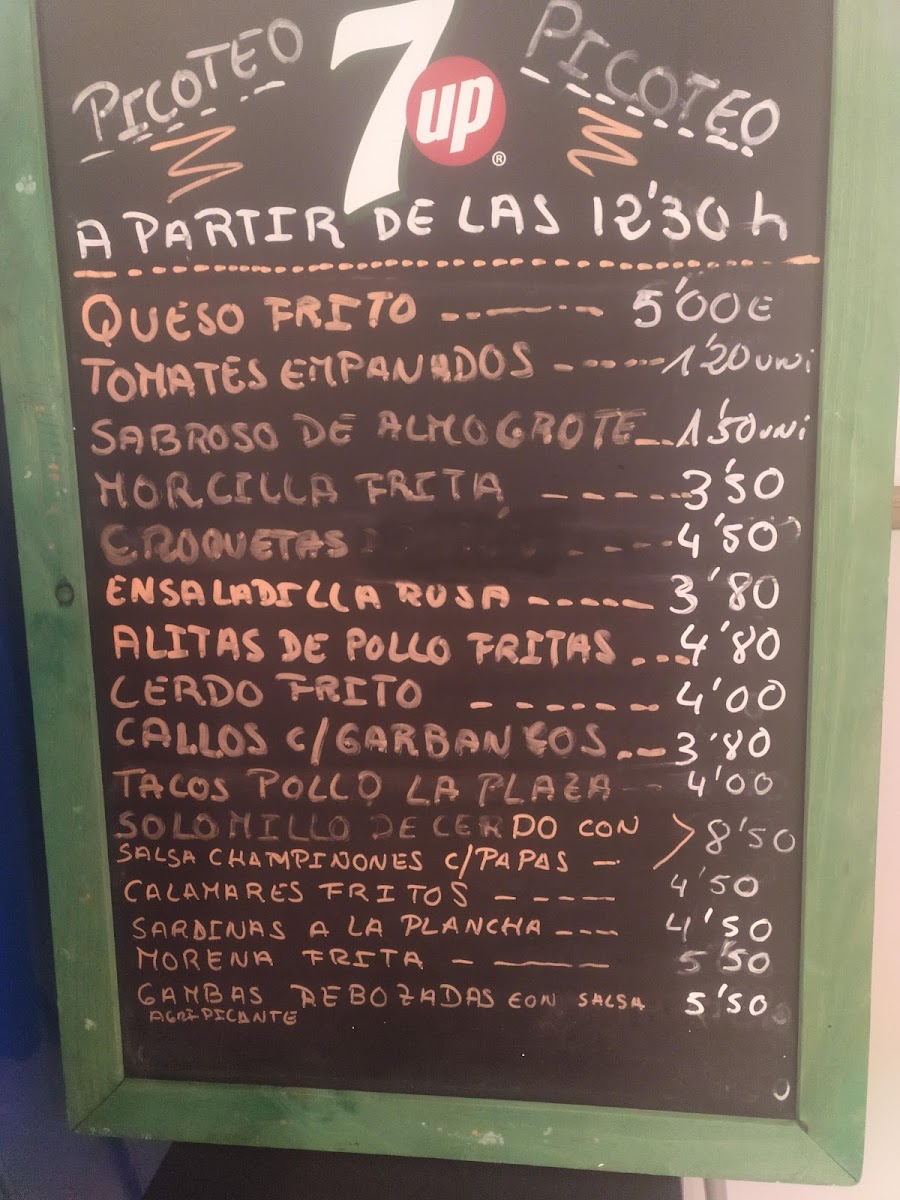 PICOTEO 7up® PICOTEO
A PARTIR DE LAS 12'30 h
QUESO FRITO ---------- 5'00€
TOMATES EMPANADOS ------ 1'20 uni
SABROSO DE ALMOGROTE -- 1'50 uni
MORCILLA FRITA ------ 3'50
CROQUETAS ---- 4'50
ENSALADILLA RUSA ------ 3'80
ALITAS DE POLLO FRITAS ---- 4'80
CERDO FRITO ------ 4'00
CALLOS C/GARBANZOS --- 3'80
TACOS POLLO LA PLAZA -- 4'00
SOLOMILLO DE CERDO CON > 8'50
SALSA CHAMPIÑONES C/PAPAS --
CALAMARES FRITOS ----- 4'50
SARDINAS A LA PLANCHA --- 4'50
MORENA FRITA ---- 5'50
GAMBAS REBOZADAS CON SALSA 5'50
AGRIPICANTE